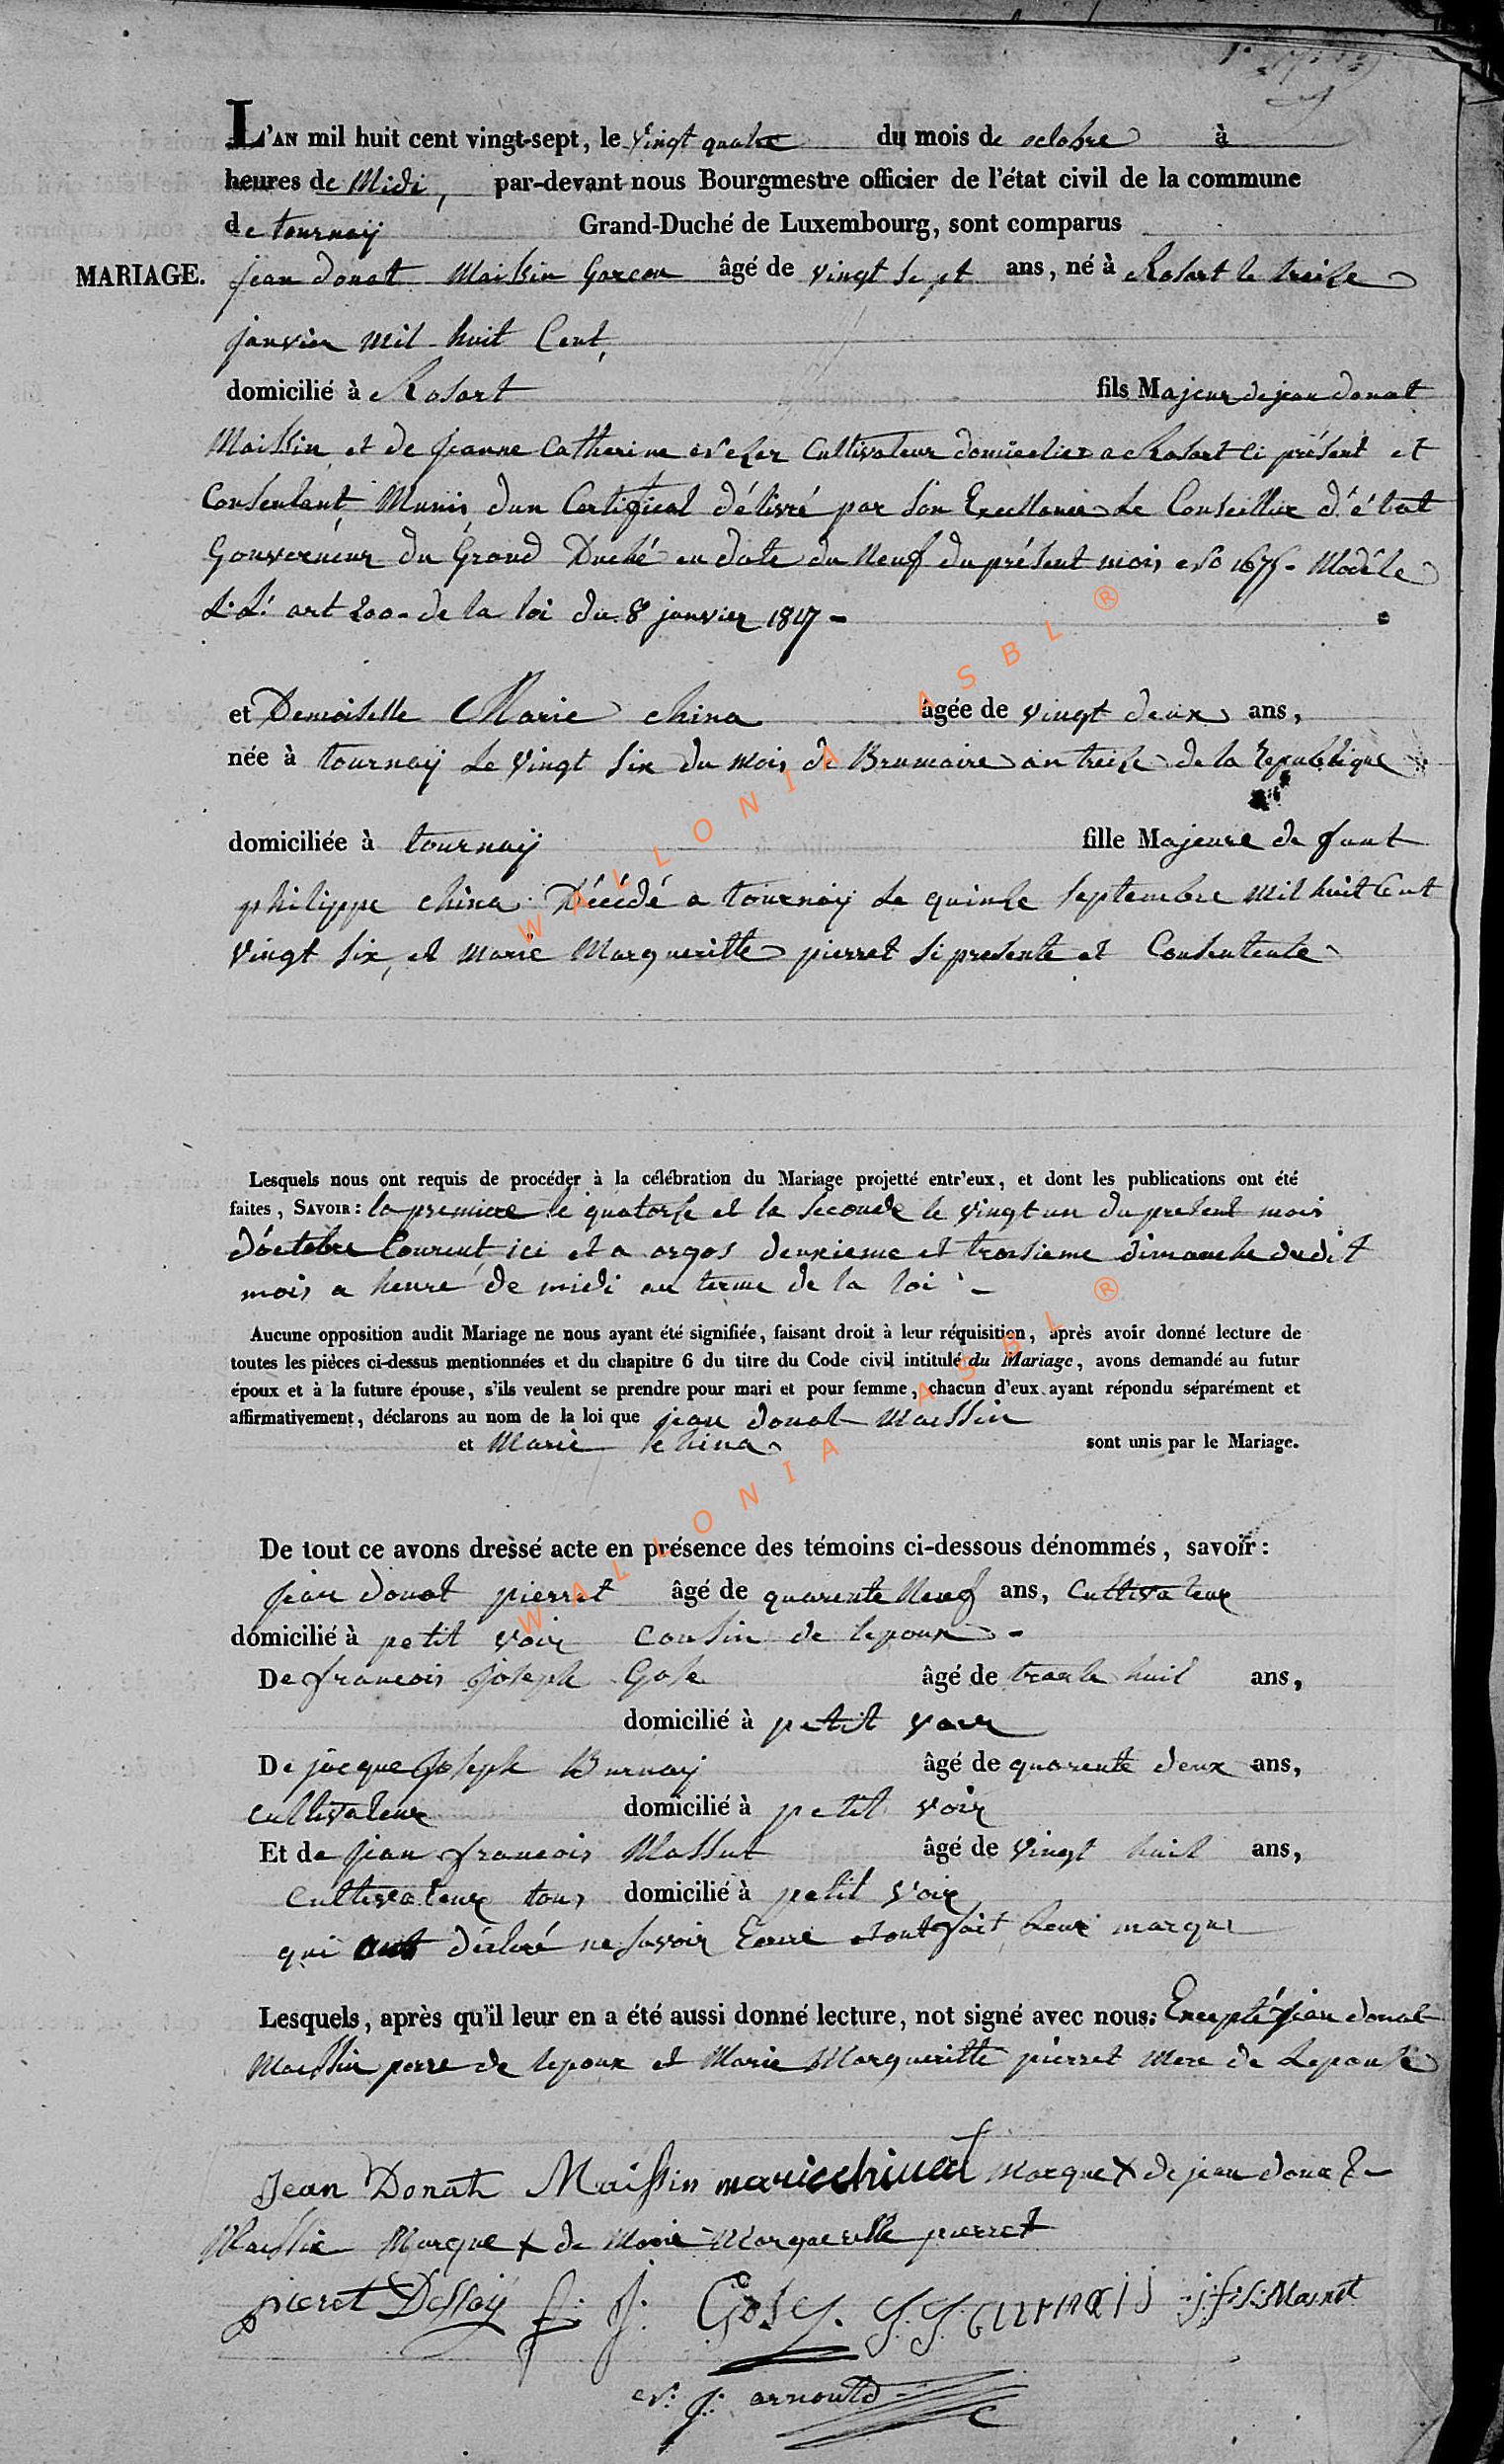 L'AN mil huit cent vingt-sept, le Vingt quatre du mois de octobre à
heures de Midi, par-devant nous Bourgmestre officier de l'état civil de la commune
de tournaÿ Grand-Duché de Luxembourg, sont comparus
MARIAGE. jean donat Maissin Garcon âgé de vingt sept ans, né à Rosart le treize
janvier mil huit Cent,
domicilié à Rosart fils Majeur de jean donat
Maissin et de jeanne Catherine Cultivateur a Rosart Ci présent et
Consentant, Munis dun Certificat délivré par Son Le Conseiller d'état
Gouverneur du Grand Duché en date du Neuf du présent mois Modéle
L.L. art 200 - de la loi du 8 janvier 1817 -
et Demoiselle Marie china âgée de vingt deux ans,
née à tournaÿ Le Vingt Six du mois de Brumaire an treize de la Republique
domiciliée à tournaÿ fille Majeure de funt
philippe china Décédé a tournaÿ Le quinze Septembre Mil huit Cent
Vingt Six, et Marie Margueritte pierret Si presente et Consentente
Lesquels nous ont requis de procéder à la célébration du Mariage projetté entr'eux, et dont les publications ont été
faites, SAVOIR : la premiere le quatorze et la Seconde le Vingt un du present mois
d'octobre Courent ici et a orgos deuxieme et troisieme dimanche dudit
mois a heure de midi au terme de la loi -
Aucune opposition audit Mariage ne nous ayant été signifiée, faisant droit à leur réquisition, après avoir donné lecture de
toutes les pièces ci-dessus mentionnées et du chapitre 6 du titre du Code civil intitulé du Mariage, avons demandé au futur
époux et à la future épouse, s'ils veulent se prendre pour mari et pour femme, chacun d'eux ayant répondu séparément et
affirmativement, déclarons au nom de la loi que jean donat Maissin
et Marie china sont unis par le Mariage.
De tout ce avons dressé acte en présence des témoins ci-dessous dénommés, savoir :
jean donat pierret âgé de quarente Neuf ans, Cultivateur
domicilié à petit voir Cousin de lepoux -
De francois joseph Gose âgé de trente huit ans,
domicilié à petit voir
De jacque joseph Burnaÿ âgé de quarente deux ans,
Cultivateur domicilié à petit voir
Et de jean francois Massut âgé de vingt huit ans,
Cultivateur tous domicilié à petit voir
qui ont déclaré ne Savoir Ecrire fait Leur marque
Lesquels, après qu'il leur en a été aussi donné lecture, not signé avec nous: Excepté jean donat
Maissin perre de lepoux et Marie Margueritte pierret Mere de Lepouse
Jean Donath Maissin marie chinat Marque X de jean donat
Maissin Marque X de Marie Margueritte pierret
pieret Dessoÿ f: j: Gosy. J. J.
J: arnould
WALLONIA ASBL ®
WALLONIA ASBL ®